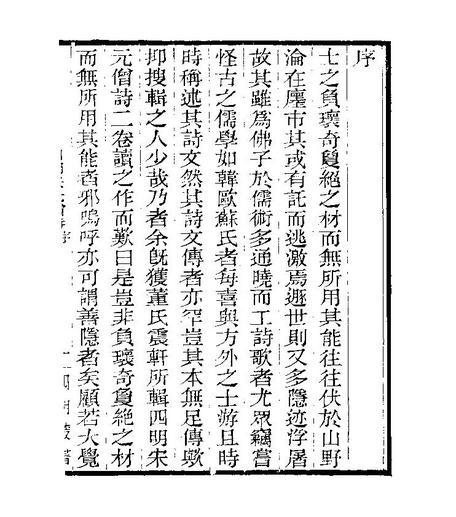 序
士之負瓌奇敻絕之材而無所用其能往往伏於山野
淪在廛市其或有託而逃激焉遯世則又多隱迹浮屠
故其雖爲佛子於儒術多通曉而工詩歌者尤眾竊嘗
怪古之儒學如韓歐蘇氏者每喜與方外之士游且時
時稱述其詩文然其詩文傳者亦罕豈其本無足傳歟
抑搜輯之人少哉乃者余旣獲董氏震軒所輯四明宋
元僧詩二卷讀之作而歎曰是豈非負瓌奇敻絕之材
而無所用其能者邪嗚呼亦可謂善隱者矣顧若大覺